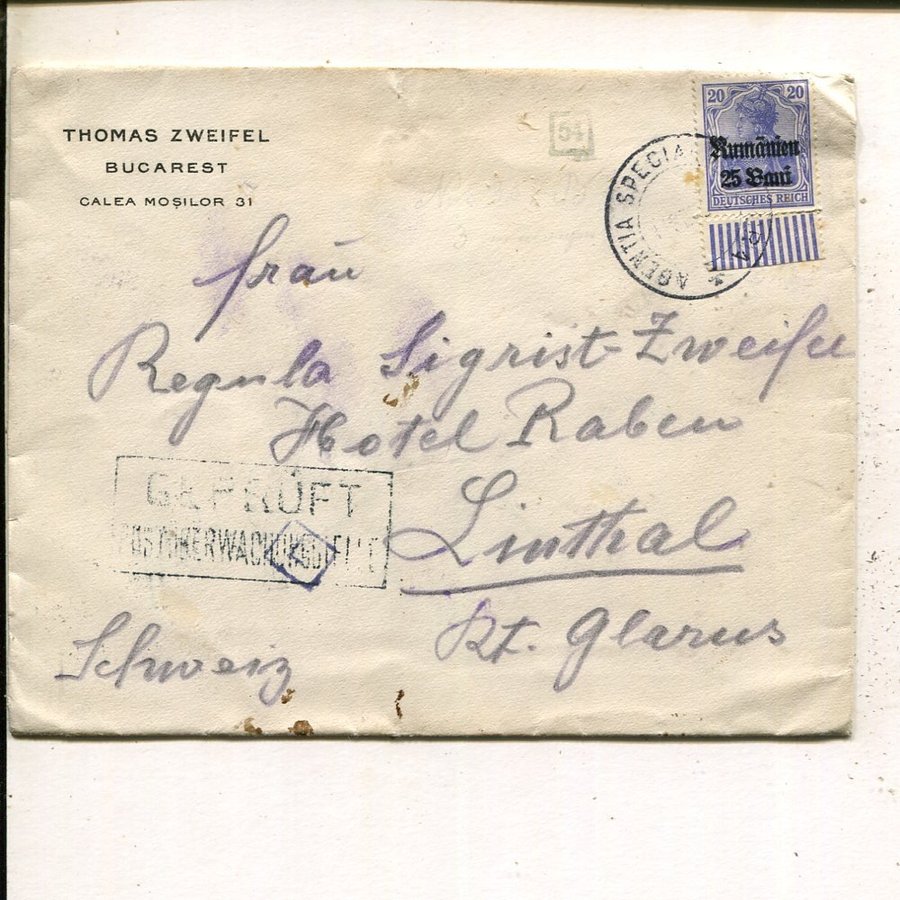 THOMAS ZWEIFEL
BUCAREST
CALEA MOȘILOR 31
54
20 20
Rumänien
25 Bani
DEUTSCHES REICH
AGENTIA SPECIA
Frau
Regula Sigrist-Zweifel
Hotel Raben
Linthal
Kt. Glarus
Schweiz
GEPRÜFT
POSTÜBERWACHUNGSSTELLE